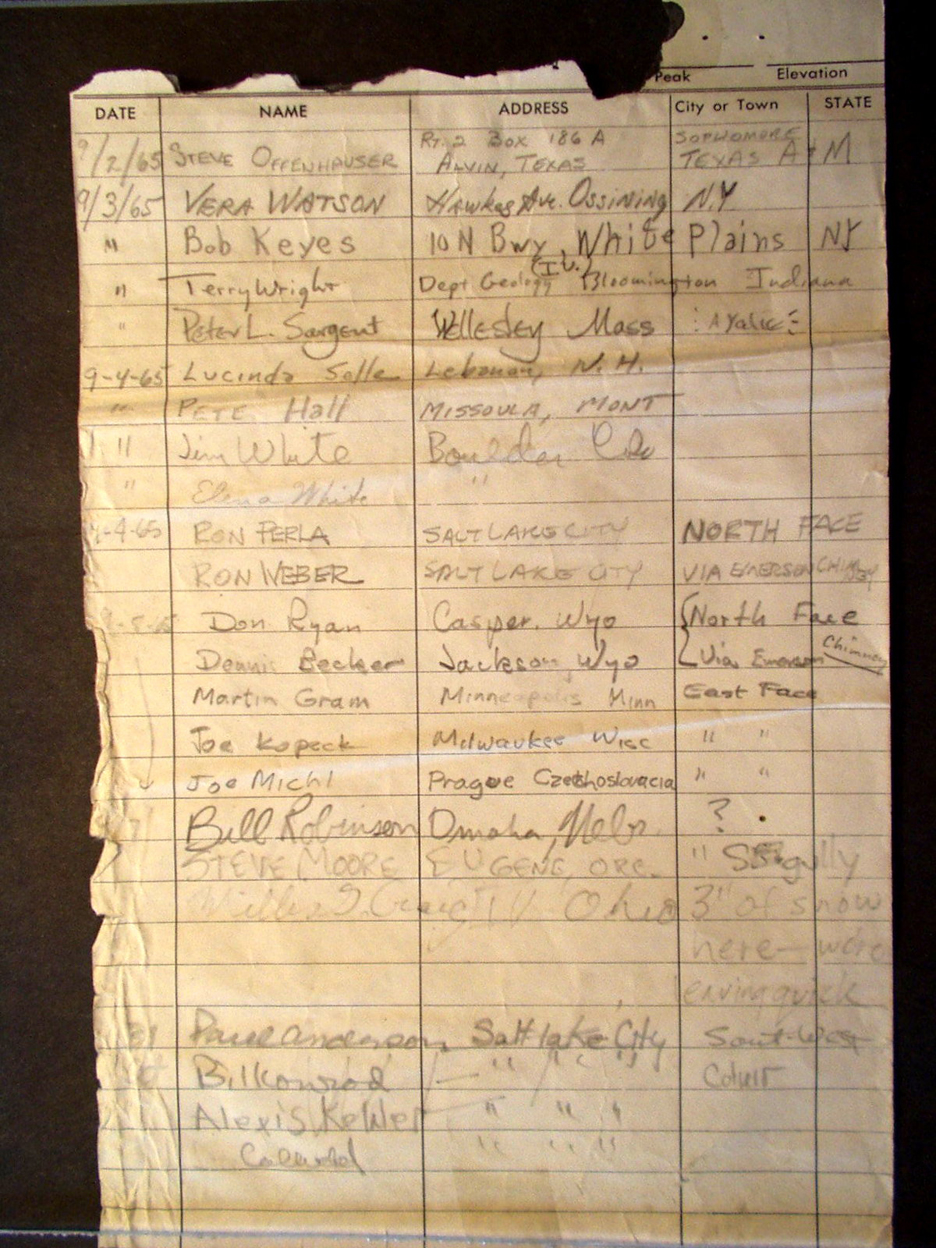 Peak Elevation
DATE NAME ADDRESS City or Town STATE
9/2/65 STEVE OFFENHAUSER RT. 2 BOX 186 A ALVIN, TEXAS SOPHOMORE TEXAS A+M
9/3/65 VERA WATSON Hawkes Ave. Ossining N.Y
" Bob Keyes 10 N Bwy, White Plains NY
" Terry Wright Dept Geology (I.U.) Bloomington Indiana
" Peter L. Sargent Wellesley Mass
9-4-65 Lucinda Lebanon, N.H.
" PETE Hall MISSOULA, MONT
" Jim White Boulder Colo
" Elena White "
-4-65 RON PERLA SALT LAKE CITY NORTH FACE
RON WEBER SALT LAKE CITY VIA EMERSON CHIMNEY
Don Ryan Casper, Wyo {North Face
Dennis Becker Jackson, Wyo Via Emerson Chimney
Martin Gram Minneapolis Minn East Face
Joe Kopeck Milwaukee Wisc " "
Joe Michl Prague Czechoslovacia " "
Bill Robinson Omaha, Nebr. ?
STEVE MOORE EUGENE, ORE. " gully
Ohio 3" of snow
here—we're
quick
Paul Anderson Salt Lake City South-West
Bill Konrad " " " Coluir
Alexis Kehler " " "
" " "